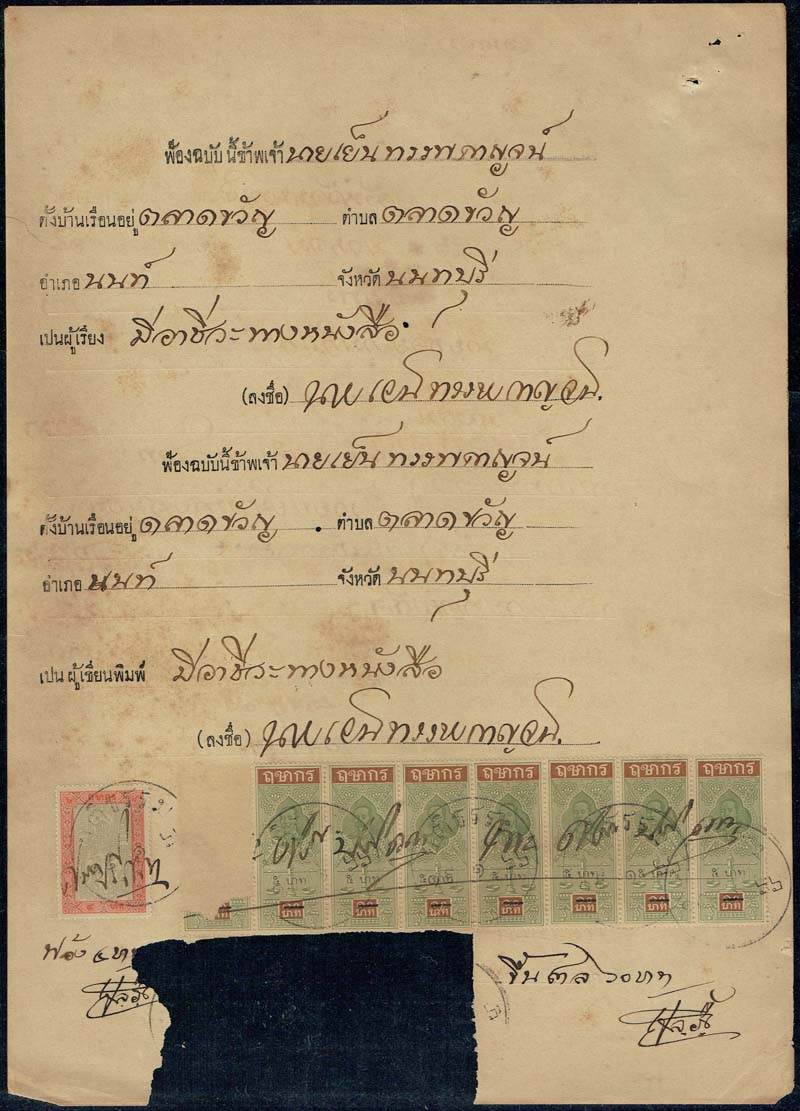 ฟ้องฉบับนี้ข้าพเจ้า นายเย็น ทรรพกาญจน์
ตั้งบ้านเรือนอยู่ ตลาดขวัญ ตำบล ตลาดขวัญ
อำเภอ นนท์ จังหวัด นนทบุรี
เปนผู้เรียง มีอาชีวะทางหนังสือ
(ลงชื่อ) นายเย็น ทรรพกาญจน์.
ฟ้องฉบับนี้ข้าพเจ้า นายเย็น ทรรพกาญจน์
ตั้งบ้านเรือนอยู่ ตลาดขวัญ ตำบล ตลาดขวัญ
อำเภอ นนท์ จังหวัด นนทบุรี
เปน ผู้เขียนพิมพ์ มีอาชีวะทางหนังสือ
(ลงชื่อ) นายเย็น ทรรพกาญจน์.
ฤชากร ฤชากร ฤชากร ฤชากร ฤชากร ฤชากร ฤชากร
๕ บาท ๕ บาท ๕ บาท ๕ บาท ๕ บาท
บาท บาท บาท บาท บาท บาท บาท บาท
ฟ้อง
ขึ้นศาล